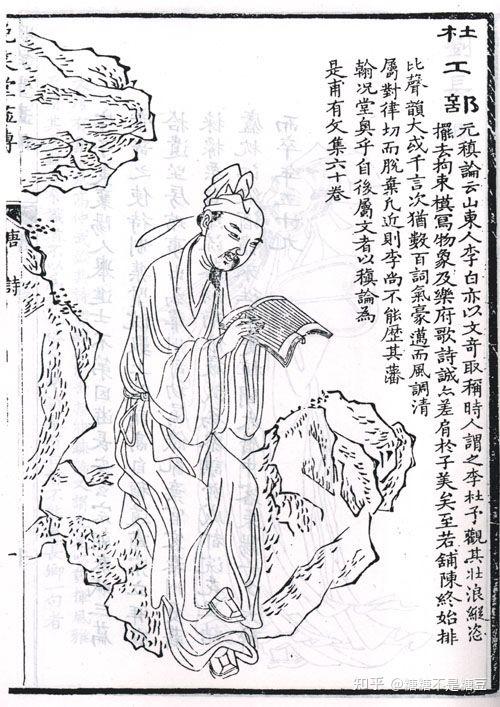 杜工部
元稹論云山東人李白亦以文竒取稱時人謂之李杜予觀其壯浪縱恣
擺去拘束模寫物象及樂府歌詩誠亦差肩於子美矣至若鋪陳終始排
比聲韻大或千言次猶數百詞氣豪邁而風調清
屬對律切而脫棄凡近則李尚不能歷其藩
翰况堂奥乎自後屬文者以稹論為
是甫有文集六十卷
知乎 @糖糖不是糖豆